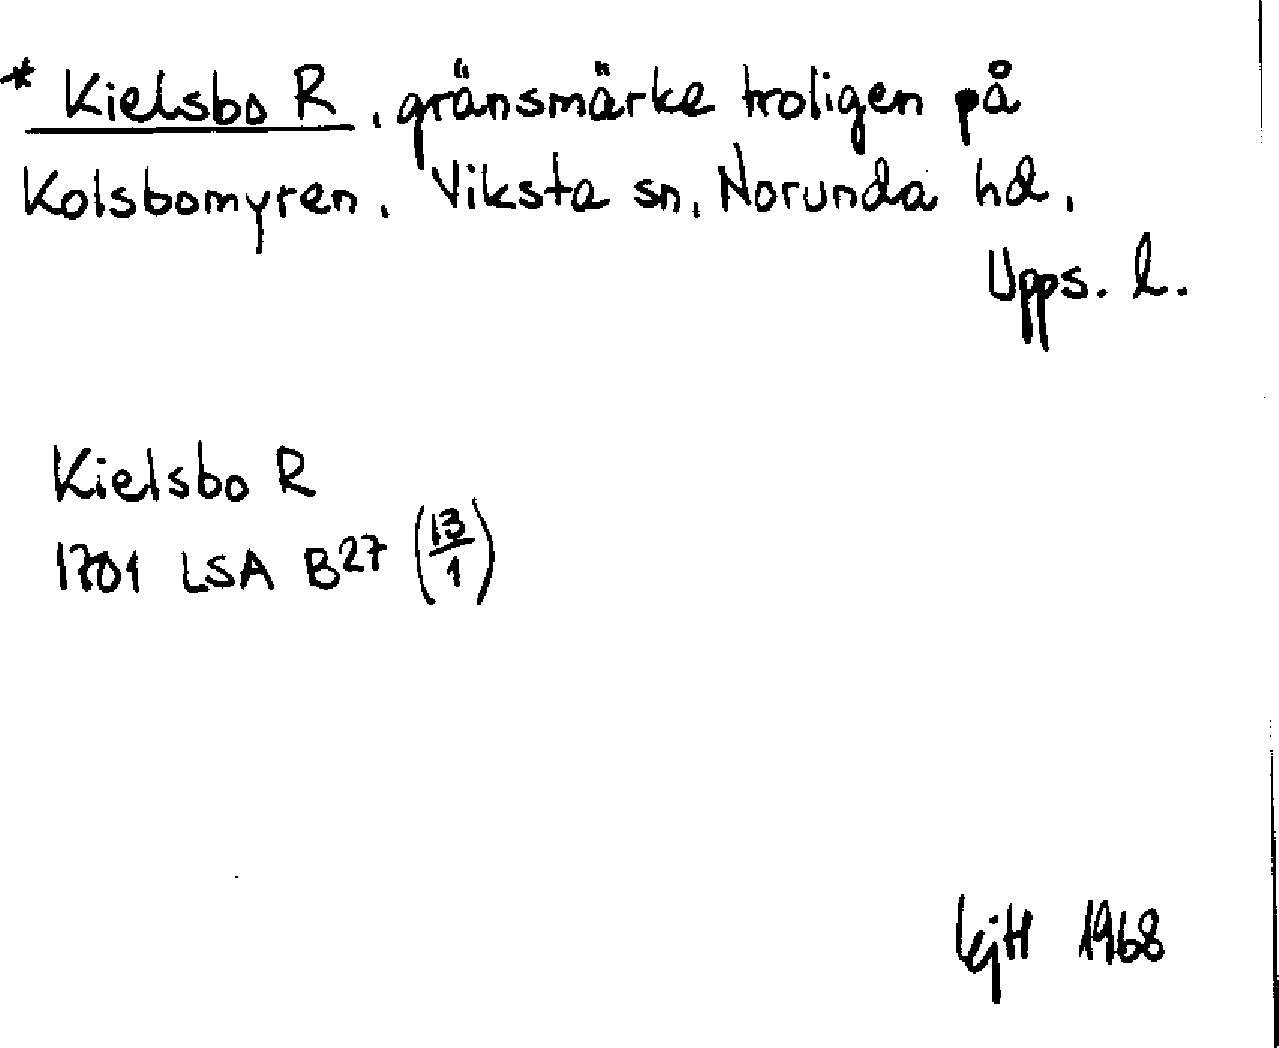 * Kielsbo R, gränsmärke troligen på
Kolsbomyren. Viksta sn, Norunda hd,
Upps. l.
Kielsbo R
1701 LSA B27 (13/1)
1968